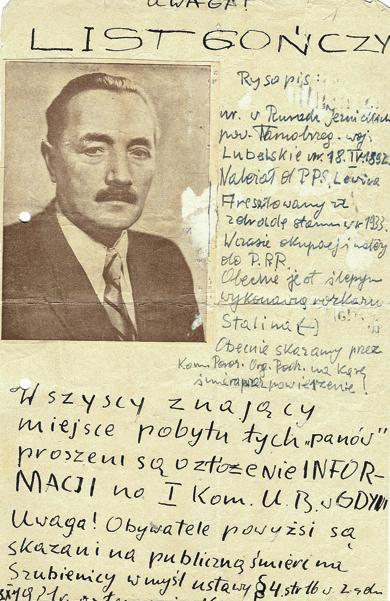 UWAGA!
LIST GOŃCZY
Rysopis:
ur. w
pow. Tarnobrzeg. woj.
Lubelskie ur. 18.IV.1892
Należał do PPS. Lewica
Aresztowany za
zdradę stanu w r. 1933.
W czasie okupacji należy
do P.P.R.
Obecnie jest ślepym
wykonawcą rozkazu
Stalina (-)
Obecnie skazany przez
Kom. Org. Podz. na karę
śmierci przez powieszenie!
Wszyscy znający
miejsce pobytu tych „panów"
proszeni są o złożenie INFOR-
MACJI na I Kom. U.B. w GDYNI
Uwaga! Obywatele powyżsi są
skazani na publiczną śmierć na
Szubienicy w myśl ustawy § 4. str 16 z dn